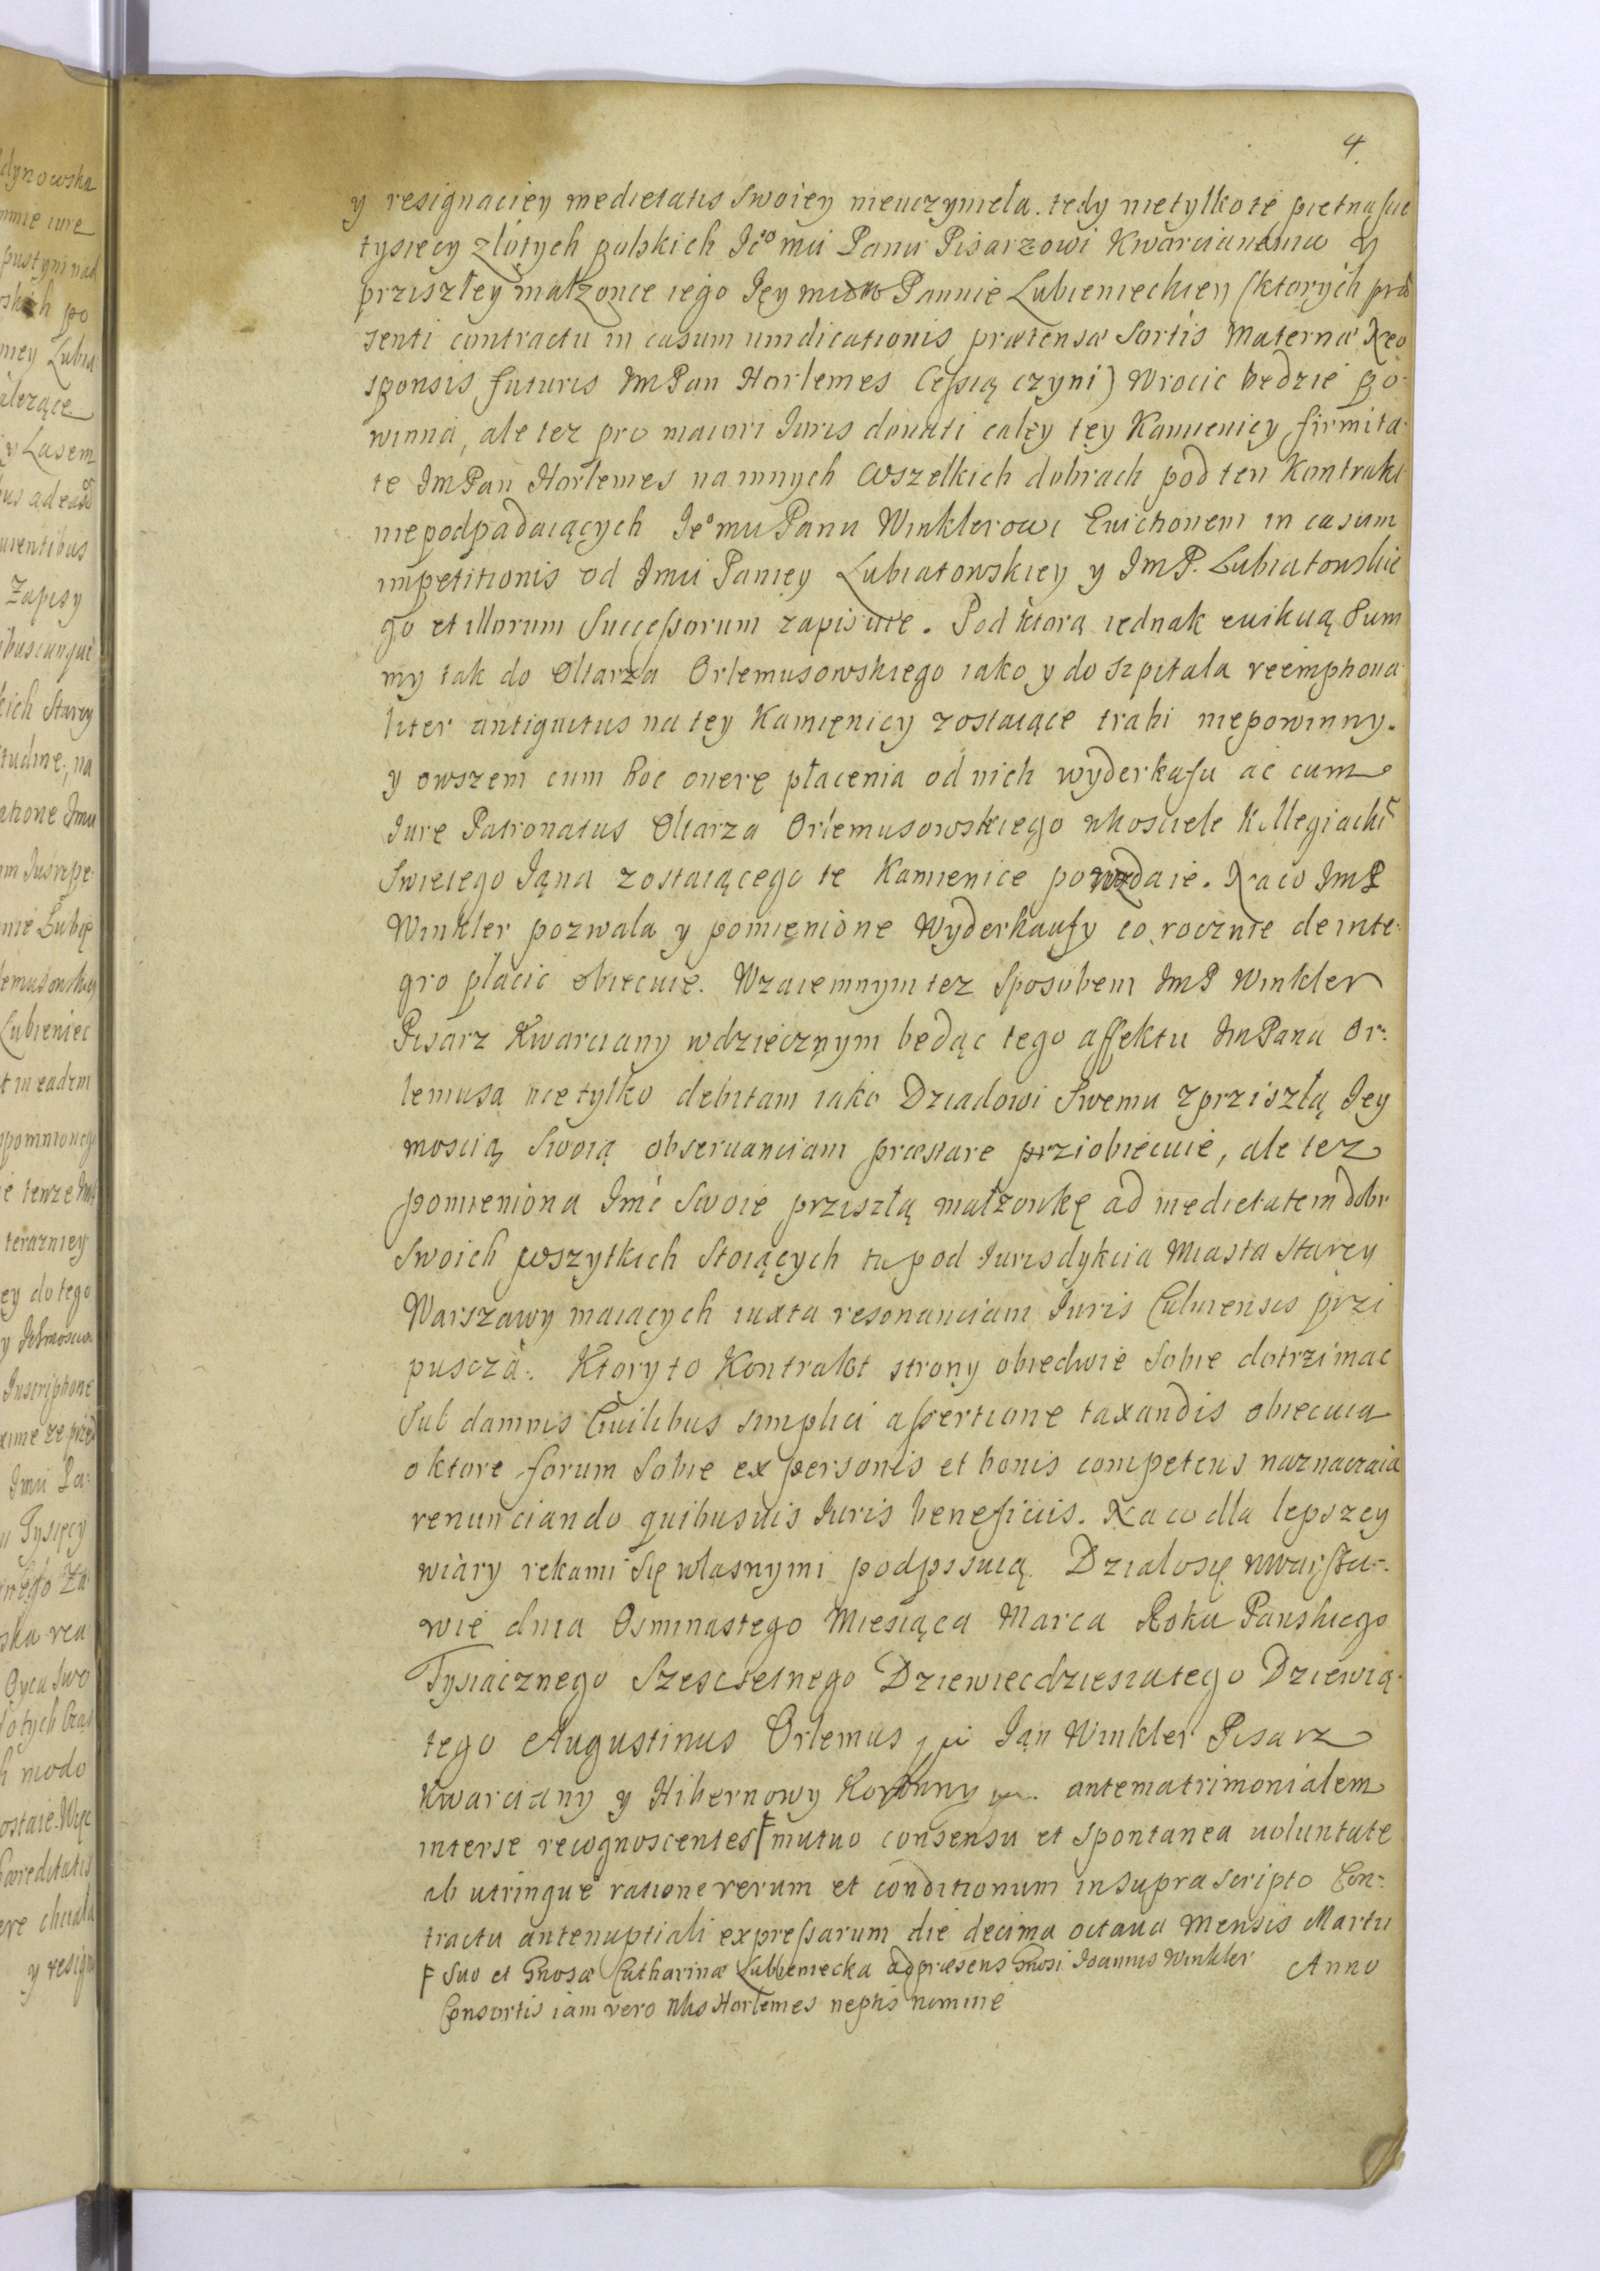 4
y resignaciey medietatis swoiey nieuczyniela. tedy nietylko te pietnascie
tysięcy złotych polskich Jeo mu Panu Pisarzowi Kwarcianemu y
prziszłey małzonce iego Jey Pannie Lubienieckiey (ktorych præ
senti contractu in casum uindicationis prætensæ Sortis Maternæ Neo
sponsis futuris Jm Pan Horlemes Cessią czyni) Wrocic będzie po-
winna, ale tez pro maiori Iuris donati całey tey Kamienicy firmita-
te Jm Pan Horlemes na innych wszelkich dobrach pod ten Kontrakt
niepodpadaiących Jeo mu Panu Winklerowi Euictionem in casum
impetitionis od Jmci Paniey Lubiatowskiey y Jm P. Lubiatowskie
go et illorum Successorum zapisuie. Pod ktorą iednak euikcią Sum
my tak do Ołtarza Orlemusowskiego iako y do szpitala reemptiona-
liter antiquitus na tey Kamięnicy zostaiące trahi niepowinny.
y owszem cum hoc onere płacenia od nich wyderkafu ac cum
Jure Patronatus Ołtarza Orlemusowskiego w kosciele Kollegiackim
Swietego Jąna zostaiącego te Kamienice poddaie. Na co Jm P
Winkler pozwala y pomięnione Wyderkaufy co rocznie de inte-
gro płacic obiecuie. Wzaiemnym tez sposobem Jm P Winkler
Pisarz Kwarciany wdziecznym bedąc tego affektu Jm Pana Or-
lemusa nie tylko debitam iako Dziadowi Swemu z prziszłą Jey
moscią Swoią obseruanciam præstare prziobiecuie, ale tez
pomieniona Jmć Swoie prziszłą małzonkę ad medietatem dobr
Swoich wszytkich Stoiących tu pod Iurisdykcia Miasta Starey
Warszawy maiących iuxta resonanciam Iuris Culmensis przi
puscza. Ktory to Kontrakt strony obiedwie Sobie dotrzimac
Sub damnis Ciuilibus simplici assertione taxandis obiecuią
o ktore forum Sobie ex personis et bonis competens naznaczaią
renunciando quibusuis Iuris beneficiis. Na co dla lepszey
wiary rekami się własnymi podpisuią. Działosię w Warsza-
wie dnia Osmnastego Miesiąca Marca Roku Panskiego
Tysiącznego Szescsetnego Dziewiecdziesiatego Dziewią-
tego Augustinus Orlemus Jąn Winkler Pisarz
Kwarciany y Hibernowy Koronny antematrimonialem
inter se recognoscentes mutuo consensu et spontanea uoluntate
ab utrinque ratione rerum et conditionum in supra scripto Con-
tractu antenuptiali expressarum die decima octaua Mensis Martii
Suo et Gnosæ Catharinæ Lubieniecka ad præsens Gnosi Ioannis Winkler
Anno
Consortis iam vero Nbs Horlemes neptis nomine